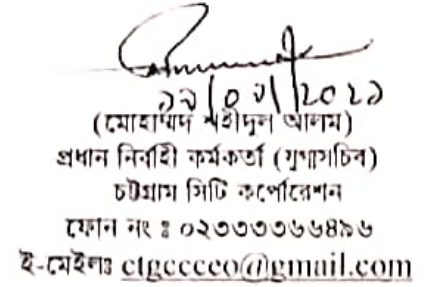 (মোহাম্মদ শহীদুল আলম)
প্রধান নির্বাহী কর্মকর্তা (যুগ্মসচিব)
চট্টগ্রাম সিটি কর্পোরেশন
ফোন নং ঃ ০২৩৩৩৩৬৬৪৯৬
ই-মেইলঃ ctgccceo@gmail.com